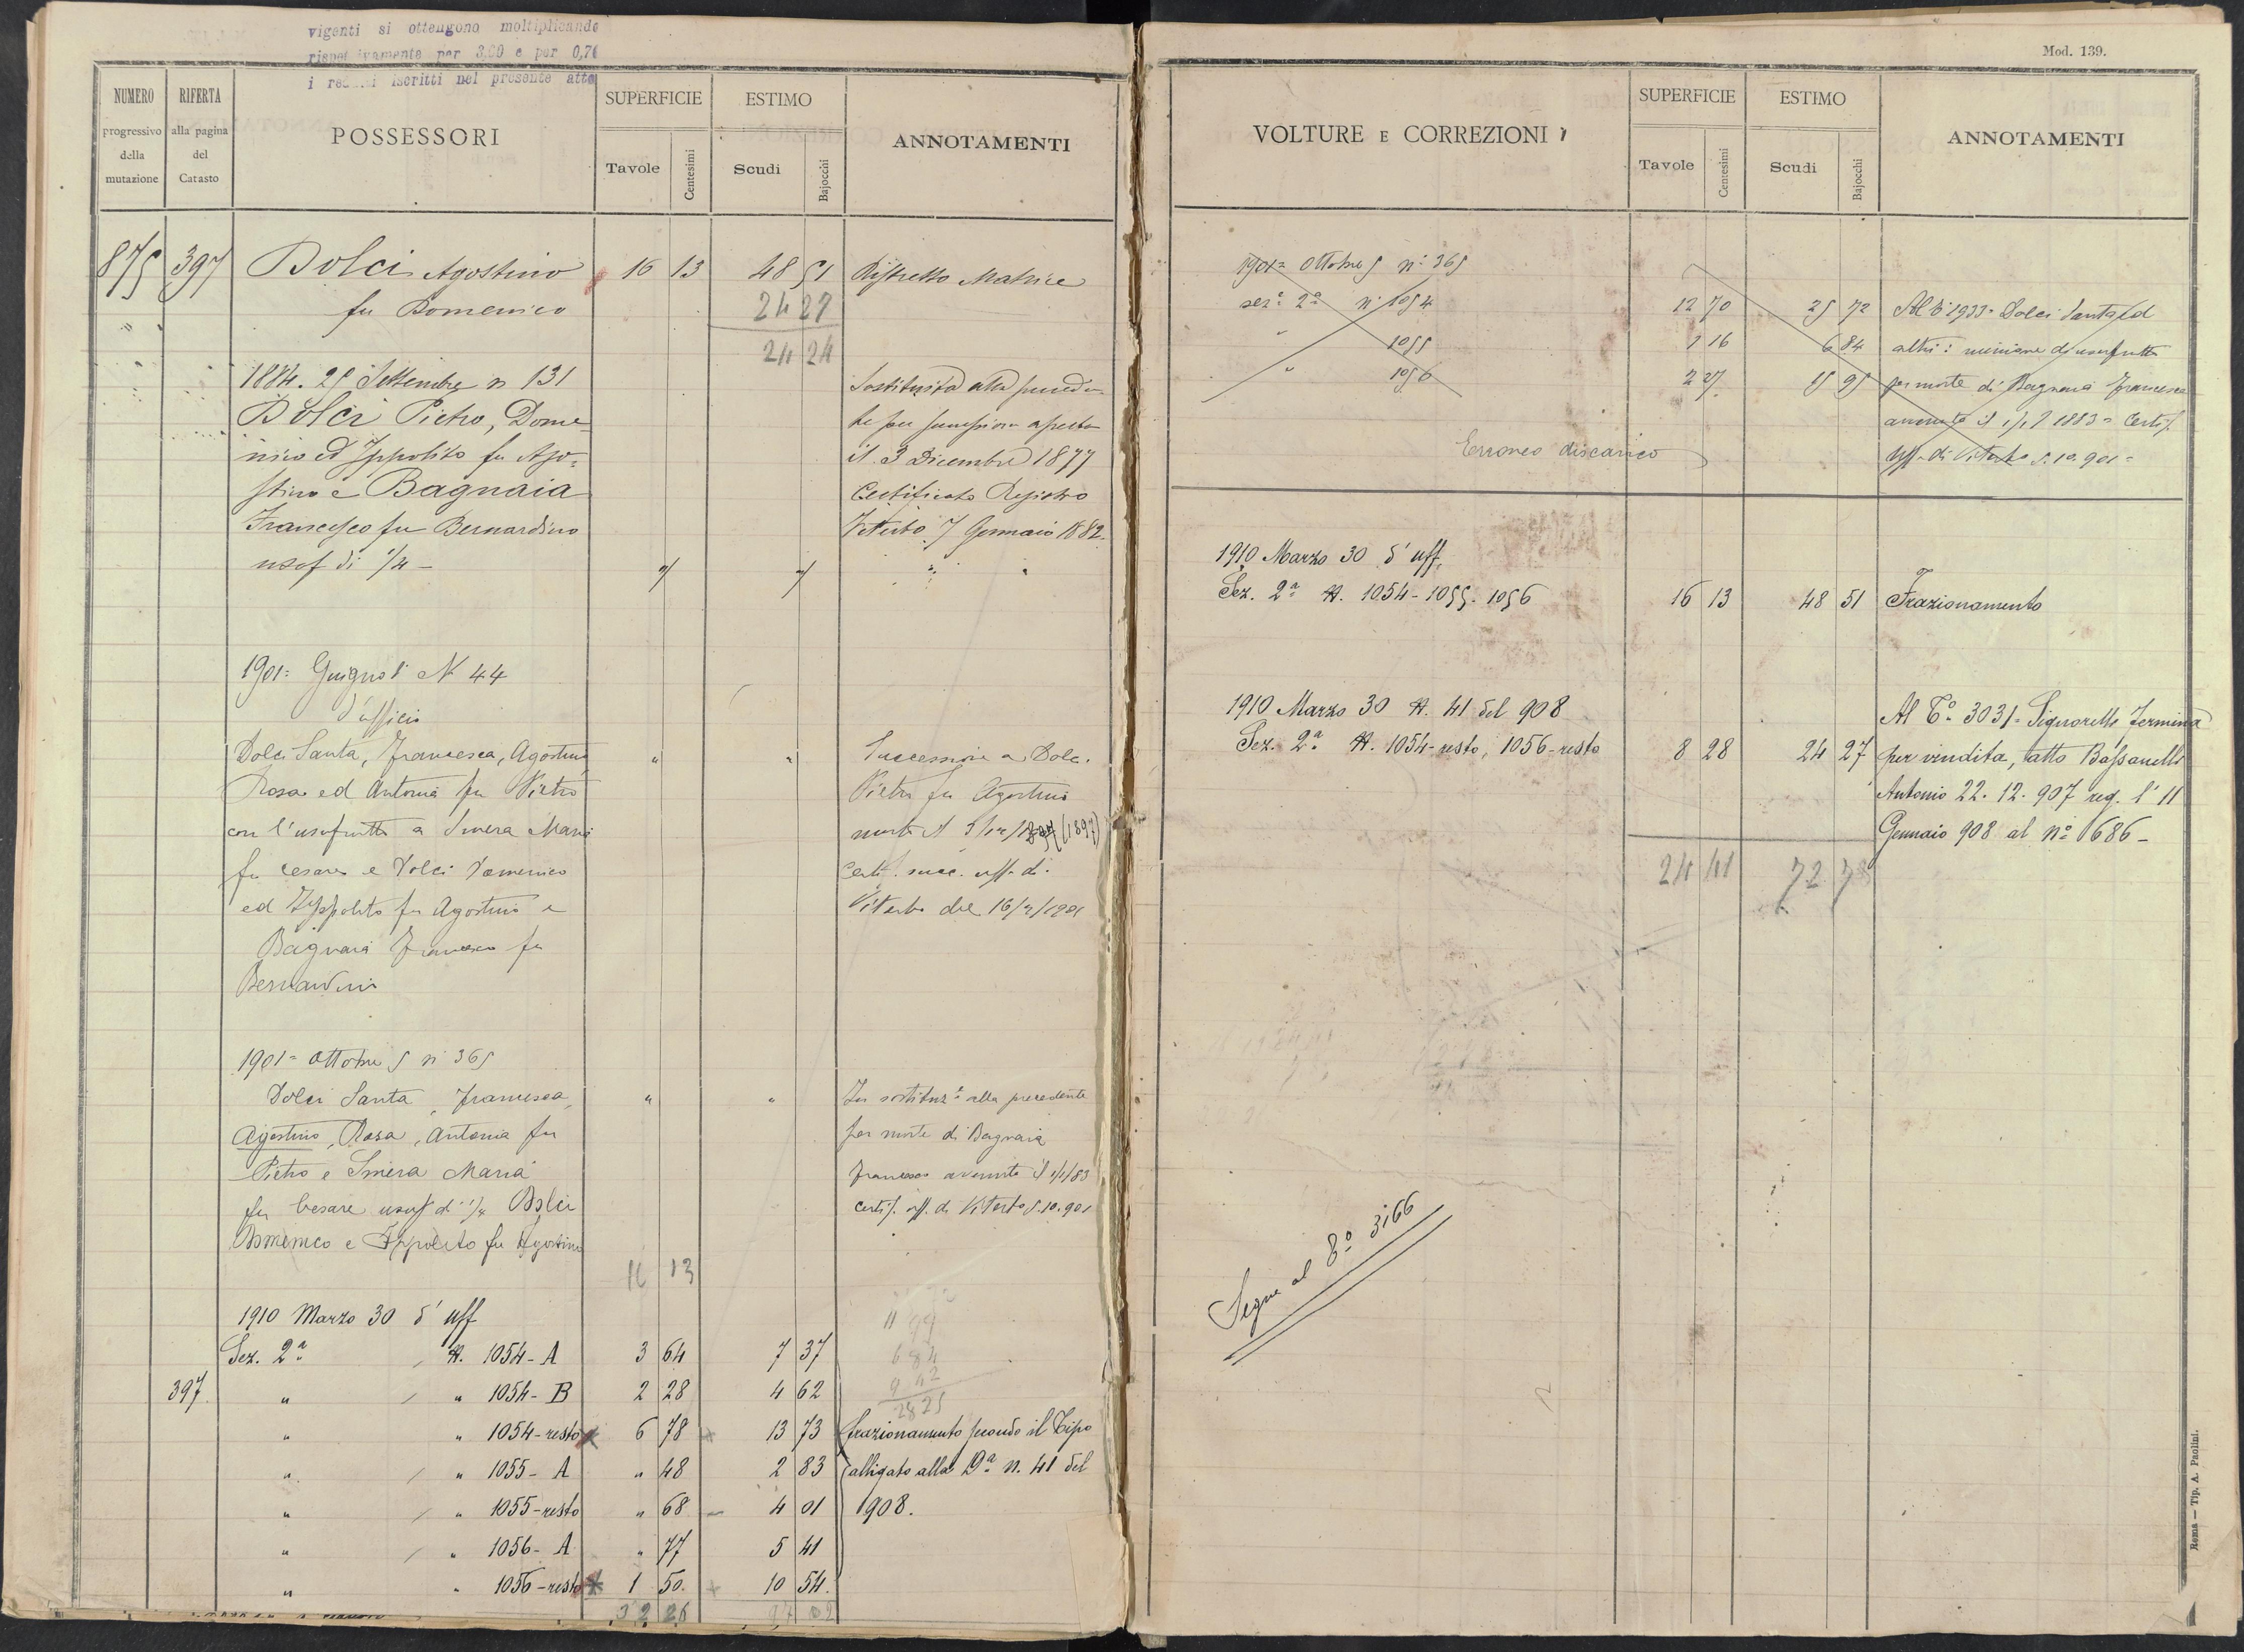 vigenti si ottengono moltiplicando
rispettivamente per 3,20 e per 0,76
i redditi iscritti nel presente atto
NUMERO
progressivo
della
mutazione
RIFERTA
alla pagina
del
Catasto
POSSESSORI
SUPERFICIE
Tavole
Centesimi
ESTIMO
Scudi
Bajocchi
ANNOTAMENTI
875 397 Dolci Agostino 16 13 48 51 Ristretto Matrice
fu Domenico 24 27
24 24
1884. 25 Settembre n 131
Dolci Pietro, Dome=
nico ed Ippolito fu Ago=
stino e Bagnaia
Francesco fu Bernardino
usuf di 1/4 -
Sostituita alla preceden=
te per successione aperta
il 3 Dicembre 1877
Certificato Registro
Viterbo 7 Gennaio 1882.
1901= Giugno 1 N 44
d'ufficio
Dolci Santa, Francesca, Agostino
Rosa ed Antonia fu Pietro
con l'usufrutto a Smera Maria
fu Cesare e Dolci Domenico
ed Ippolito fu Agostino e
Bagnaia Francesco fu
Bernardino
" "
Successione a Dolci
Pietro fu Agostino
morto il 5/12/ (1897)
Certif. succ. uff. di
Viterbo del 16/4/1901
1901= Ottobre 5 n 365
Dolci Santa, Francesca,
Agostino, Rosa, Antonia fu
Pietro e Smera Maria
fu Cesare usuf di 1/4 Dolci
Domenico e Ippolito fu Agostino
" "
In sostituz.e alla precedente
per morte di Bagnaia
Francesco avvenuta il 1/1/83
Certif. uff. di Viterbo 5.10.901
16 13
1910 Marzo 30 d'uff
Sez. 2a N. 1054-A 3 64 7 37
397 " " 1054-B 2 28 4 62
" " 1054-resto 6 78 13 73 frazionamento secondo il Tipo
" " 1055-A " 48 2 83 alligato alla Da n. 41 del
" " 1055-resto " 68 4 01 1908.
" " 1056-A " 77 5 41
" " 1056-resto 1 50. 10 54.
32 26 97 02
11 99
6 84
9 42
28 25
Mod. 139.
VOLTURE E CORREZIONI
SUPERFICIE
Tavole
Centesimi
ESTIMO
Scudi
Bajocchi
ANNOTAMENTI
1901= Ottobre 5 n° 365
sez.e 2a n° 1054 12 70 25 72 Al To 1933= Dolci Santa ed
" 1055 1 16 6 84 altri: riunione di usufrutto
" 1056 2 27. 15 95 per morte di Bagnaia Francesco
avvenuta il 1/1 1883= Certif.
Erroneo discarico Uff. di Viterbo 5.10.901=
1910 Marzo 30 d'uff.
Sez. 2a N. 1054-1055-1056 16 13 48 51 Frazionamento
1910 Marzo 30 N. 41 del 908 Al To. 3031= Signorelli Fermina
Sez. 2a N. 1054-resto, 1056-resto 8 28 24 27 per vendita, atto Bassanelli
Antonio 22.12.907 reg. l'11
Gennaio 908 al no 686-
24 41 72 78
Segue al To 3166
Roma — Tip. A. Paolini.